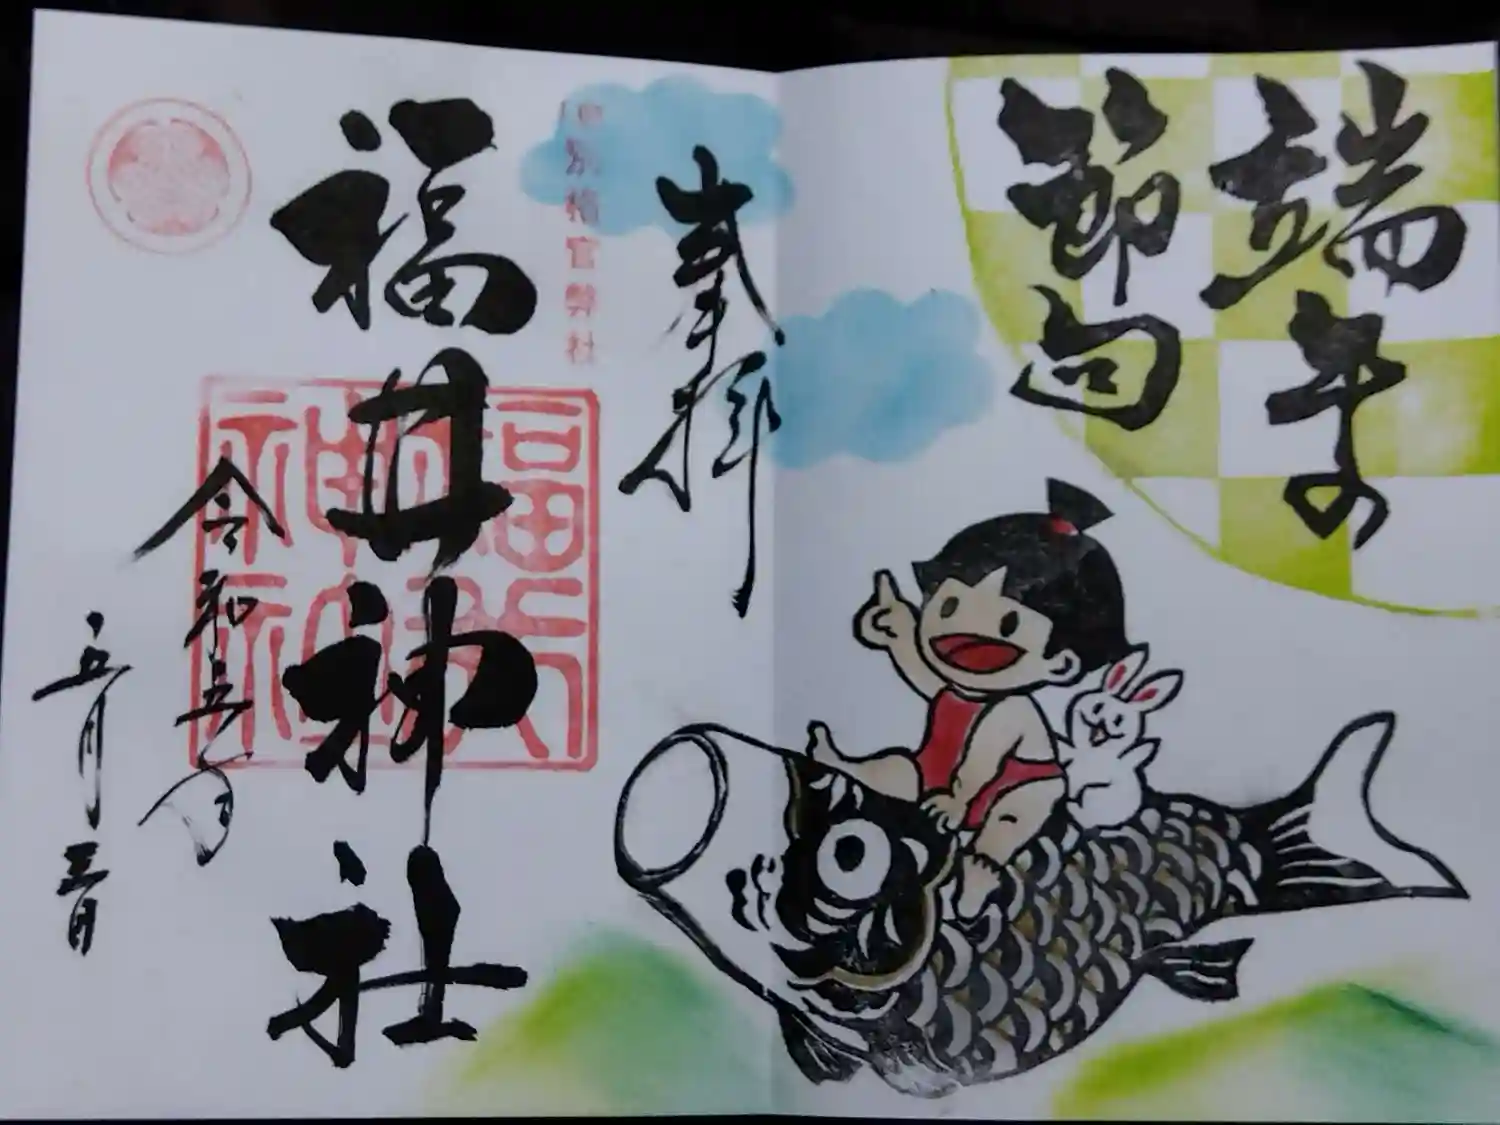 端午の
節句
奉拝
別格官幣社
福井神社
令和五年
五月三日